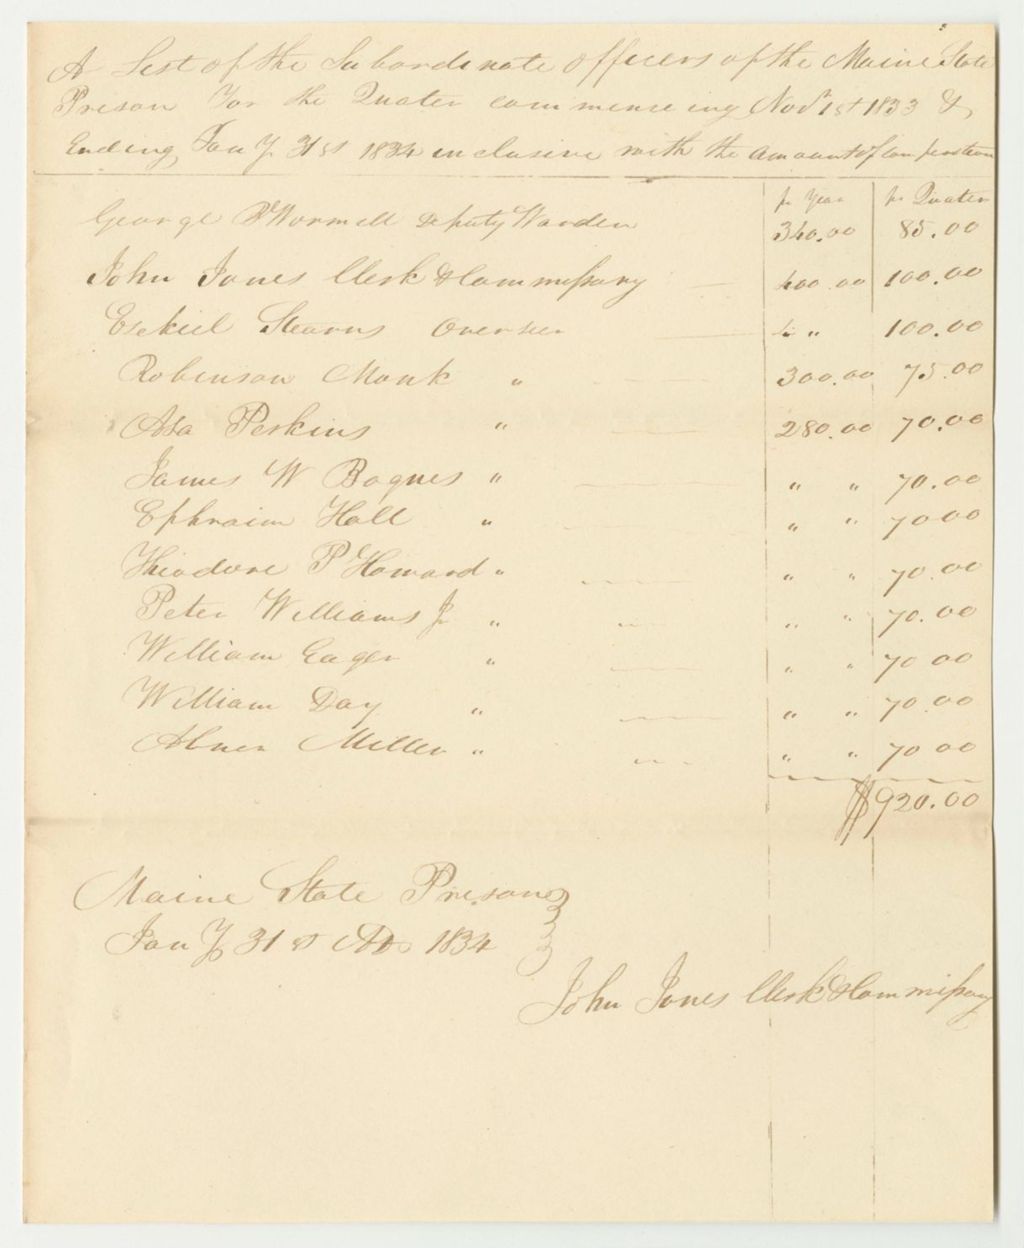 A List of the Subordinate officers of the Maine State
Prison For the Quater commenceing Novr 1st 1833 &
Ending Jany 31st 1834 inclusive with the amount of compensation
pr Year pr Quater
George P Wormell Deputy Warden 340.00 85.00
John Jones Clerk & Commissary 400.00 100.00
Esekiel Stearns Overseer " " 100.00
Robinson Monk " 300.00 75.00
Asa Perkins " 280.00 70.00
James W Bognes " " " 70.00
Ephraim Hall " " " 70 00
Theodore P Howard " " " 70.00
Peter Williams Jr " " " 70.00
William Eager " " " 70 00
William Day " " " 70.00
Abner Miller " " " 70 00
$920.00
Maine State Prison
Jany 31st AD 1834
John Jones Clerk & Commissary